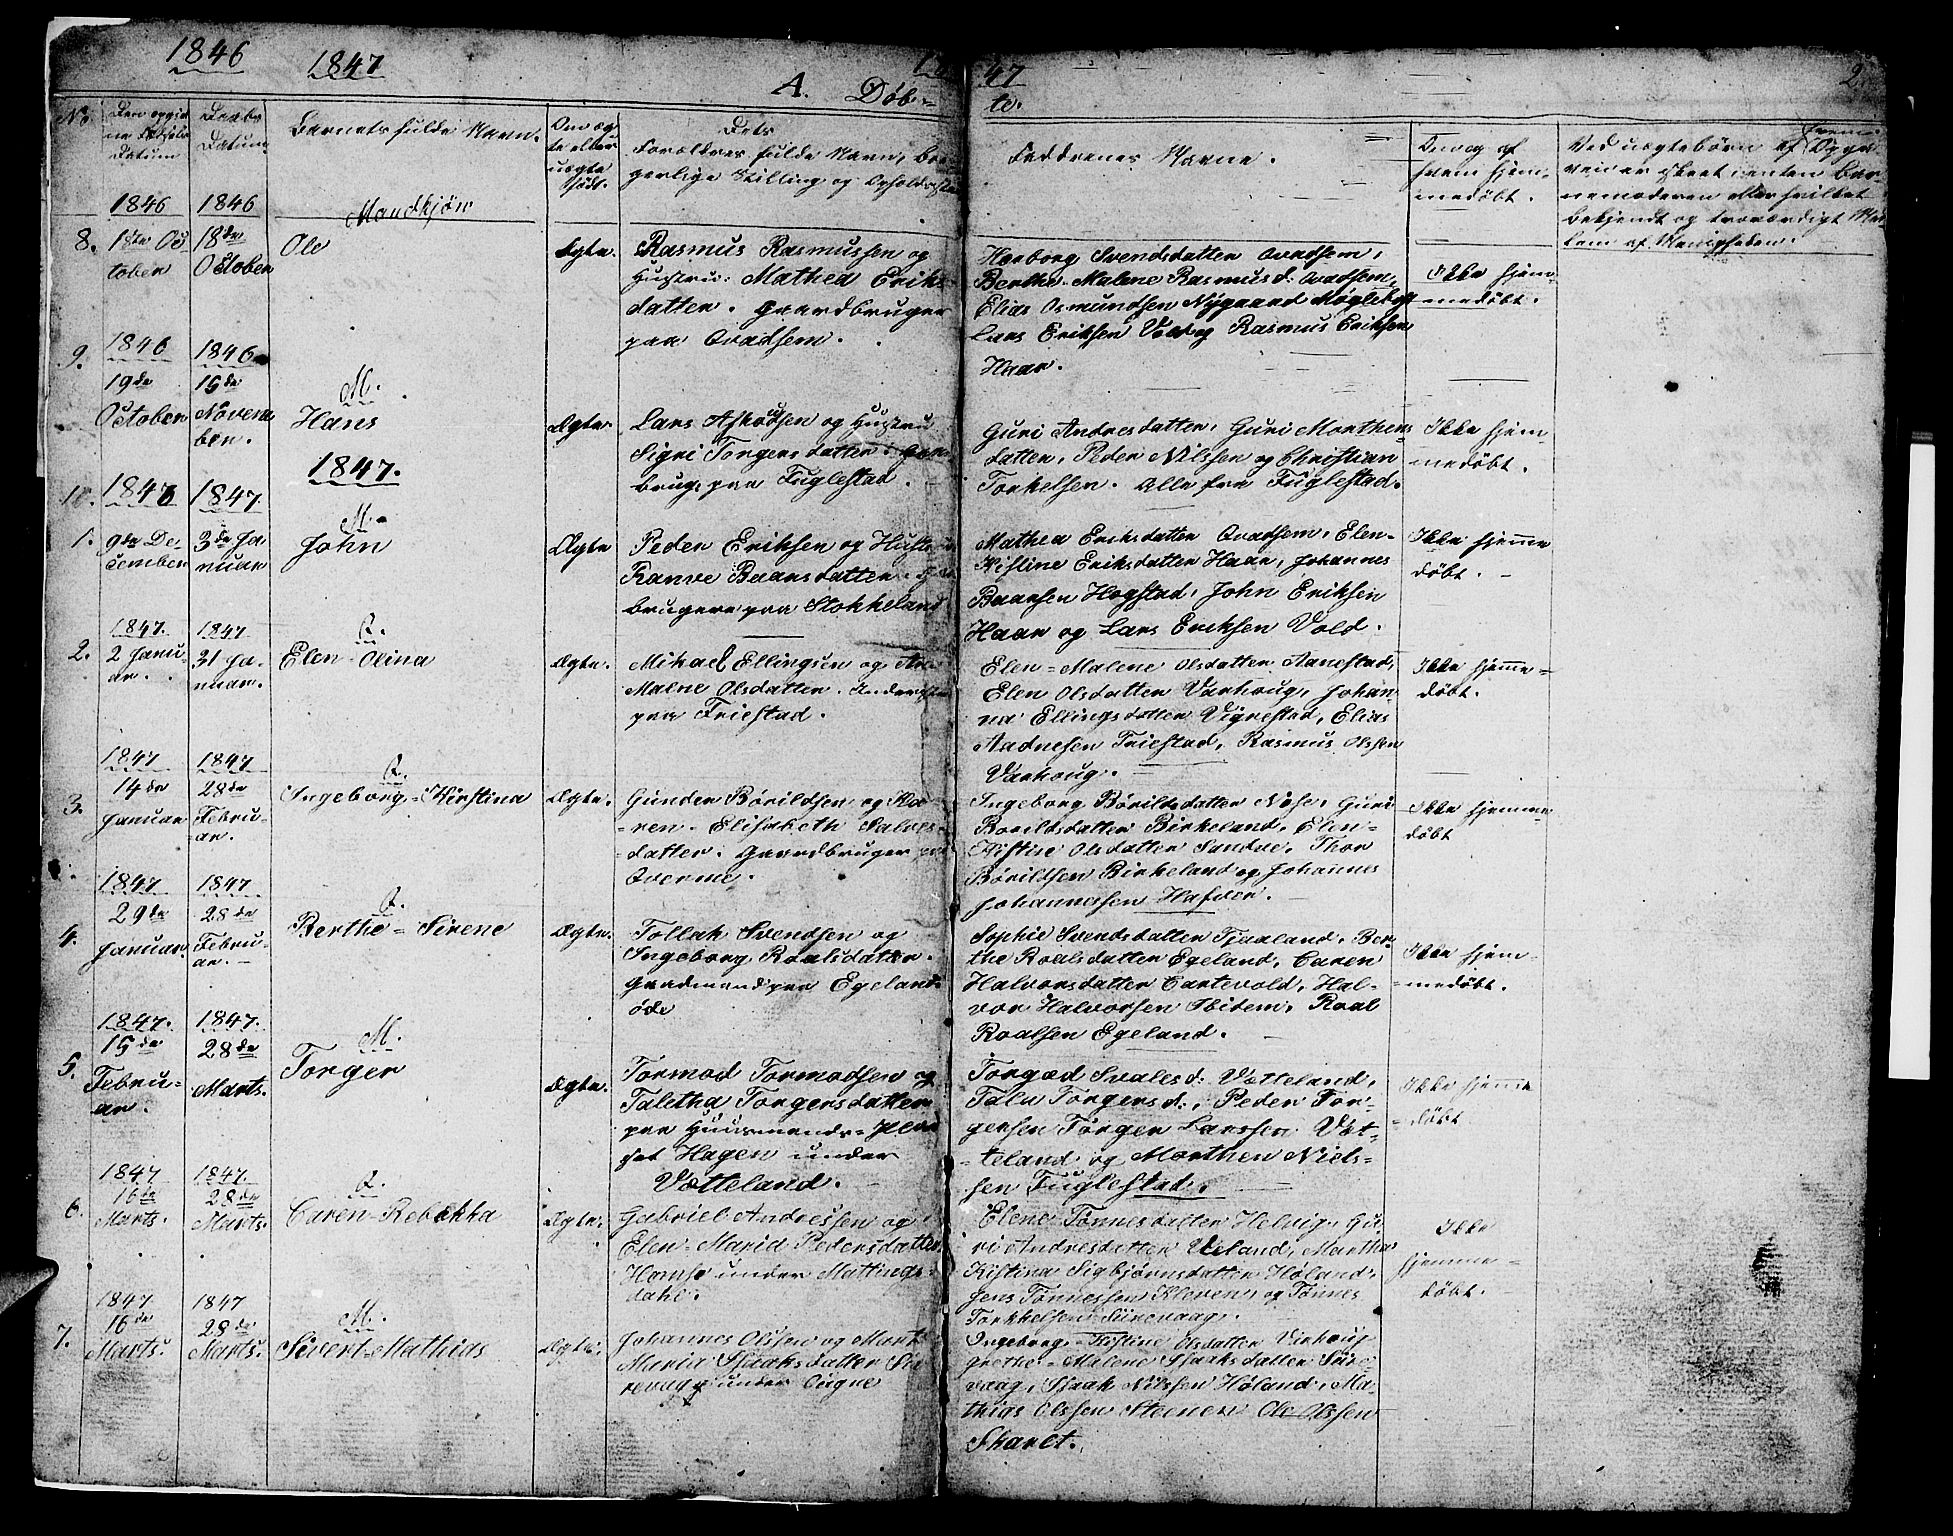 1846 1847 18 47 2.
A. Døb= te.
No. Den opgiv
ne Fødsels
Datum
Daabs
Datum
Barnets fulde Navn.
Om æg
te eller
uægte
født.
Dets
Forældres fulde Navn, bor
gerlige Stilling og Opholdssted
Faddrenes Navne.
Om og af
hvem hjem-
medøbt.
Ved uægtebørn af hvem Opga
ven er skeet enten Bar-
nemoderen eller hvilket
bekjendt og troværdigt Med
lem af Menigheden.
1846 1846 Mandkjøn
8. 18de Oc
tober
18de
October
Ole
Ægte.
Rasmus Rasmussen og
Hustru: Mathea Eriks-
datter. Gaardbruger
paa Qvadsem.
Herborg Svendsdatter Qvadsem,
Berthe-Malene Rasmusd: Qvadsem,
Elias Osmundsen Nygaard Møglebost
Lars Eriksen Vold og Rasmus Eriksen
Haar.
Ikke hjem-
medøbt.
9. 1846
19de
October
1846
15de
Novem
ber.
M.
Hans
Ægte.
Lars Aschodsen og Hustru
Sigri Torgersdatter: Gaar
brug. paa Fuglestad.
Guri Andresdatter, Guri Morthens-
datter, Peder Nilssen og Christian
Torkelsen. Alle fra Fuglestad.
Ikke hjem-
medøbt.
1847.
10. 1846 1847
1. 9de De-
cember
3de Ja
nuar
M.
John
Ægte
Peder Eriksen og Hustru
Ranve Baarsdatter.
brugere paa Stokkeland
Mathea Eriksdatter Qvadsem, Elen-
Kistine Eriksdatter Haar, Johannes
Baarsen Hogstad, John Eriksen
Haar og Lars Eriksen Vold.
Ikke hjemme
døbt.
2. 1847.
2 Janu-
ar.
1847
31 Ja-
nuar.
Q.
Elen-Olina
Ægte.
Mihael Ellingsen og
Malne Olsdatter. Inderster
paa Friestad.
Elen=Malene Olsdatter Aanestad,
Elen Olsdatter Varhoug, Johan-
na Ellingsdatter Vigrestad, Elias
Aadnesen Friestad, Rasmus Olssen
Varhoug.
Ikke hjemme=
døbt.
3. 1847
14de
Januar
1847
28de
Febru-
ar.
Q.
Ingeborg=Kirstina
Ægte.
Gunder Børildsen og Ka-
=ren-Elisabeth Salves-
=datter. Gaardbruger paa
Qverme.
Ingeborg Børildsdatter Nøse, Guri
Borildsdatter Birkeland, Elen=
Kistine Olsdatter Sandve, Thor
Børildsen Birkeland og Johannes
Johannessen Hafsøer.
Ikke hjemme
døbt
4. 1847
29de
Januar.
1847
28de
Febru-
ar.
Q.
Berthe=Sirene
Ægte.
Tollak Svendsen og
Ingeborg Roalsdatter.
Gaardmand paa Egelands
øde
Sophie Svendsdatter Tjaaland, Ber
the Roalsdatter Egeland, Caren
Halvorsdatter Cartevold, Hal-
vor Halvorsen Ibidem, Roal
Roalsen Egeland.
Ikke hjem-
=medøbt.
5. 1847.
15de
Febru-
ar.
1847.
28de
Marts.
M.
Torger
Ægte.
Tormod Tormodsen og
Taletha Torgersdatter
paa Huusmands=Plad
set Hagen under
Vætteland.
Torgæd Svalesd: Vætteland,
Talu Torgersd:, Peder Tor-
gersen Torger Larssen Væt-
-teland og Morthen Niels-
sen Fuglestad.
Ikke hjemme
=døbt
6. 1847
16de
Marts.
1847.
28de
Marts.
Q.
Caren-Rebekka
Ægte.
Gabriel Andressen og
Elen-Maria Pedersdatter
Homse under Matings-
dahl.
Elene Tønnesdatter Helvig, Gu-
ri Andresdatter Veland, Martha
Kistina Sigbjørnsdatter Høland,
Jens Tønnessen Kleven og Tønnes
Torkkelsen Sirevaag.
Ikke
hjemme=
døbt.
7. 1847
16de
Marts.
1847
28de
Marts.
M.
Sivert=Mathias
Ægte.
Johannes Olssen og
Maria Isaaksdatter Si
revaag under Ougne
Ingeborg-Kistine Olsdatter Varhoug
Grethe-Malene Isaaksdatter Sire
vaag, Isaak Nilssen Høland, Ma-
thias Olssen Steenen Ole Olssen
Skaret.